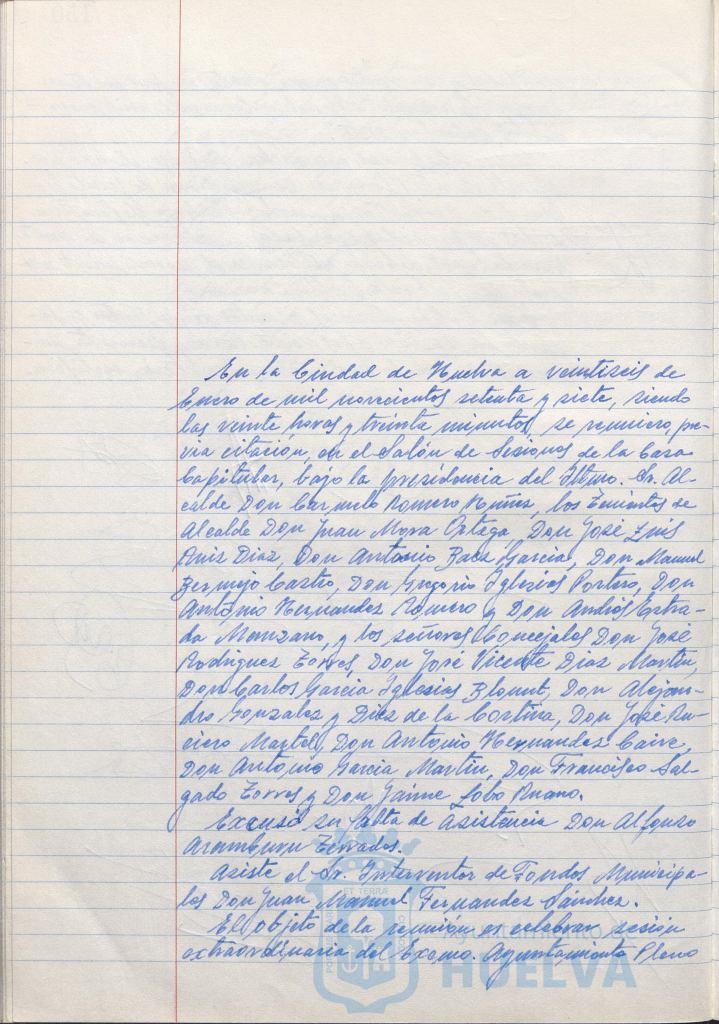 En la Ciudad de Huelva a veintiseis de
Enero de mil novecientos setenta y siete, siendo
las veinte horas y treinta minutos, se reunieron, pre-
via citación, en el Salón de Sesiones de la Casa
Capitular, bajo la presidencia del Iltmo. Sr. Al-
calde Don Carmelo Romero Núñez, los Tenientes de
Alcalde Don Juan Mora Ortega, Don José Luis
Ruiz Diaz, Don Antonio Baez Garcia, Don Manuel
Bermejo Castro, Don Gregorio Iglesias Portero, Don
Antonio Hernandez Romero y Don Andrés Estra-
da Manzano, y los señores Concejales Don José
Rodriguez Torres, Don José Vicente Diaz Martin,
Don Carlos García Iglesias Blount, Don Alejan-
dro Gonzalez y Diez de la Cortina, Don José Ru-
ciero Martel, Don Antonio Hernandez
Don Antonio Garcia Martin, Don Francisco Sal-
gado Torres y Don Jaime Lobo Ruano.
Excusó su falta de asistencia Don Alfonso
Aramburu Terrados.
Asiste el Sr. Interventor de Fondos Municipa-
les Don Juan Manuel Fernandez Sánchez.
El objeto de la reunión es celebrar sesión
extraordinaria del Excmo. Ayuntamiento Pleno
Ayuntamiento
HUELVA